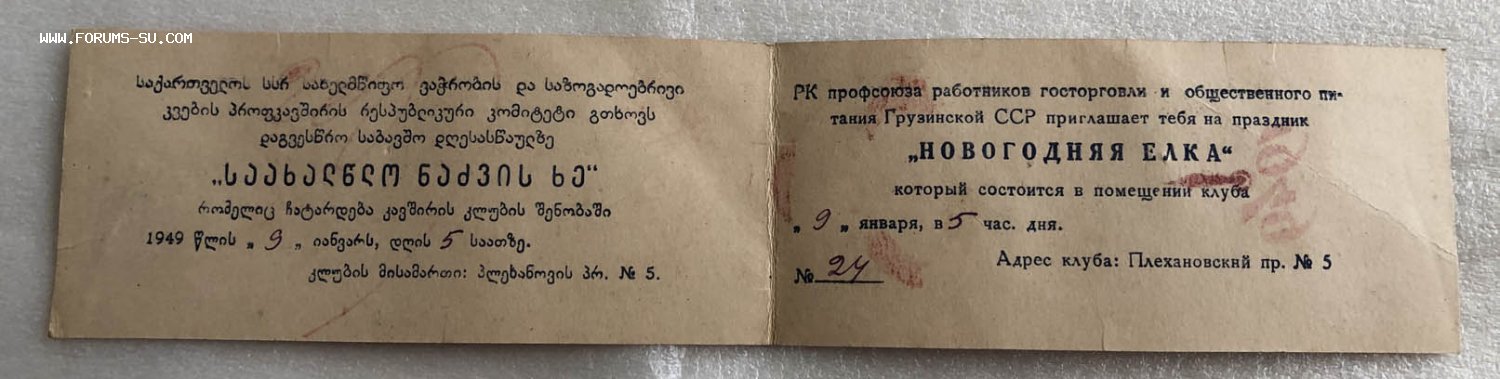 WWW.FORUMS-SU.COM
საქართველოს სსრ სახელმწიფო ვაჭრობის და საზოგადოებრივი
კვების პროფკავშირის რესპუბლიკური კომიტეტი გთხოვს
დაგვესწრო საბავშო დღესასწაულზე
„საახალწლო ნაძვის ხე“
რომელიც ჩატარდება კავშირის კლუბის შენობაში
1949 წლის „ 9 „ იანვარს, დღის 5 საათზე.
კლუბის მისამართი: პლეხანოვის პრ. № 5.
РК профсоюза работников госторговли и общественного пи-
тания Грузинской ССР приглашает тебя на праздник
„НОВОГОДНЯЯ ЕЛКА“
который состоится в помещении клуба
„ 9 „ января, в 5 час. дня.
Адрес клуба: Плехановский пр. № 5
№ 24